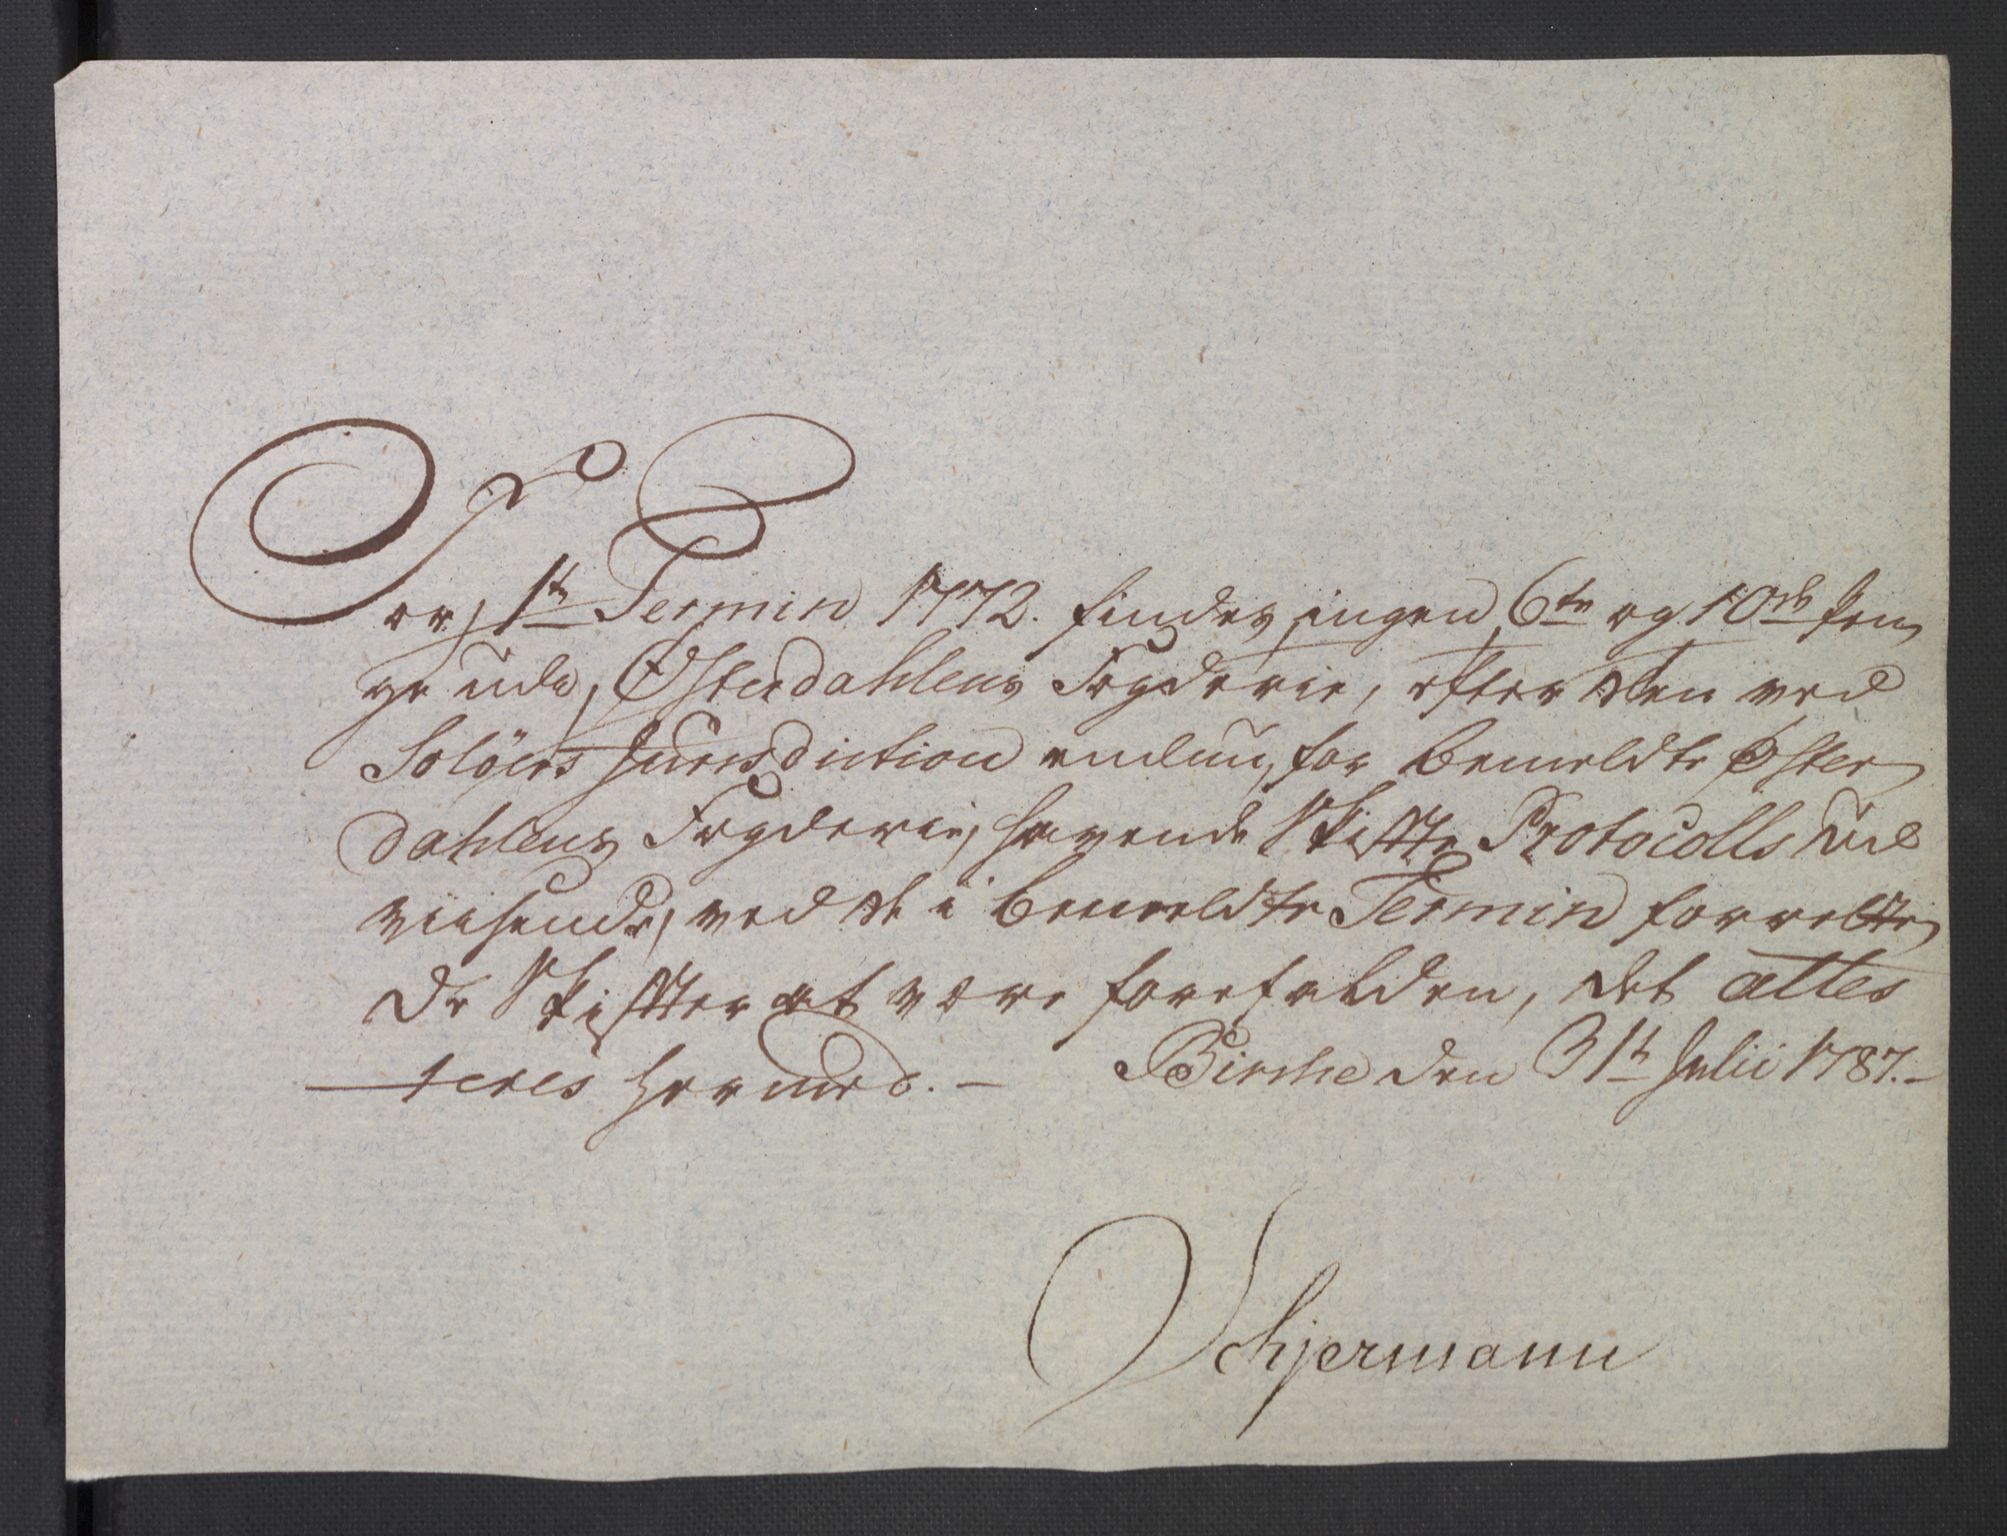 For 1te Termin 1772. findes ingen 6te og 10de Pen
ge udi Østerdahlens Fogderie, efter den ved
Soløers Jurisdiction endnu, for bemeldte Øster
dahlens Fogderie, havende Skifte Protocolls Ud
viisende, ved de i bemeldte Termin forrette
de Skifter at være forefalden, det attes
teres hermed. — Birche den 31te Julii 1787. —
Schjermann